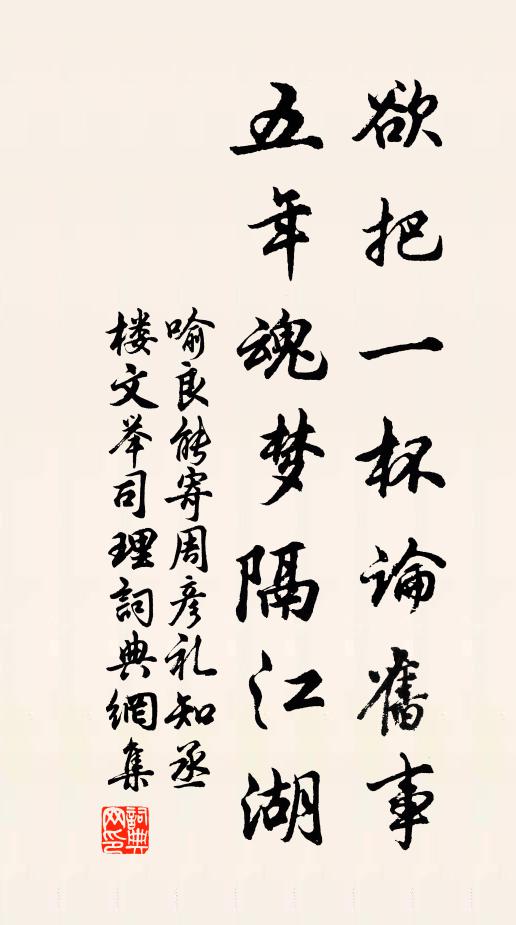 欲把一杯論舊事
五年魂梦隔江湖
喻良能寄周彦礼知丞
楼文举司理詞典網集
詞典网印